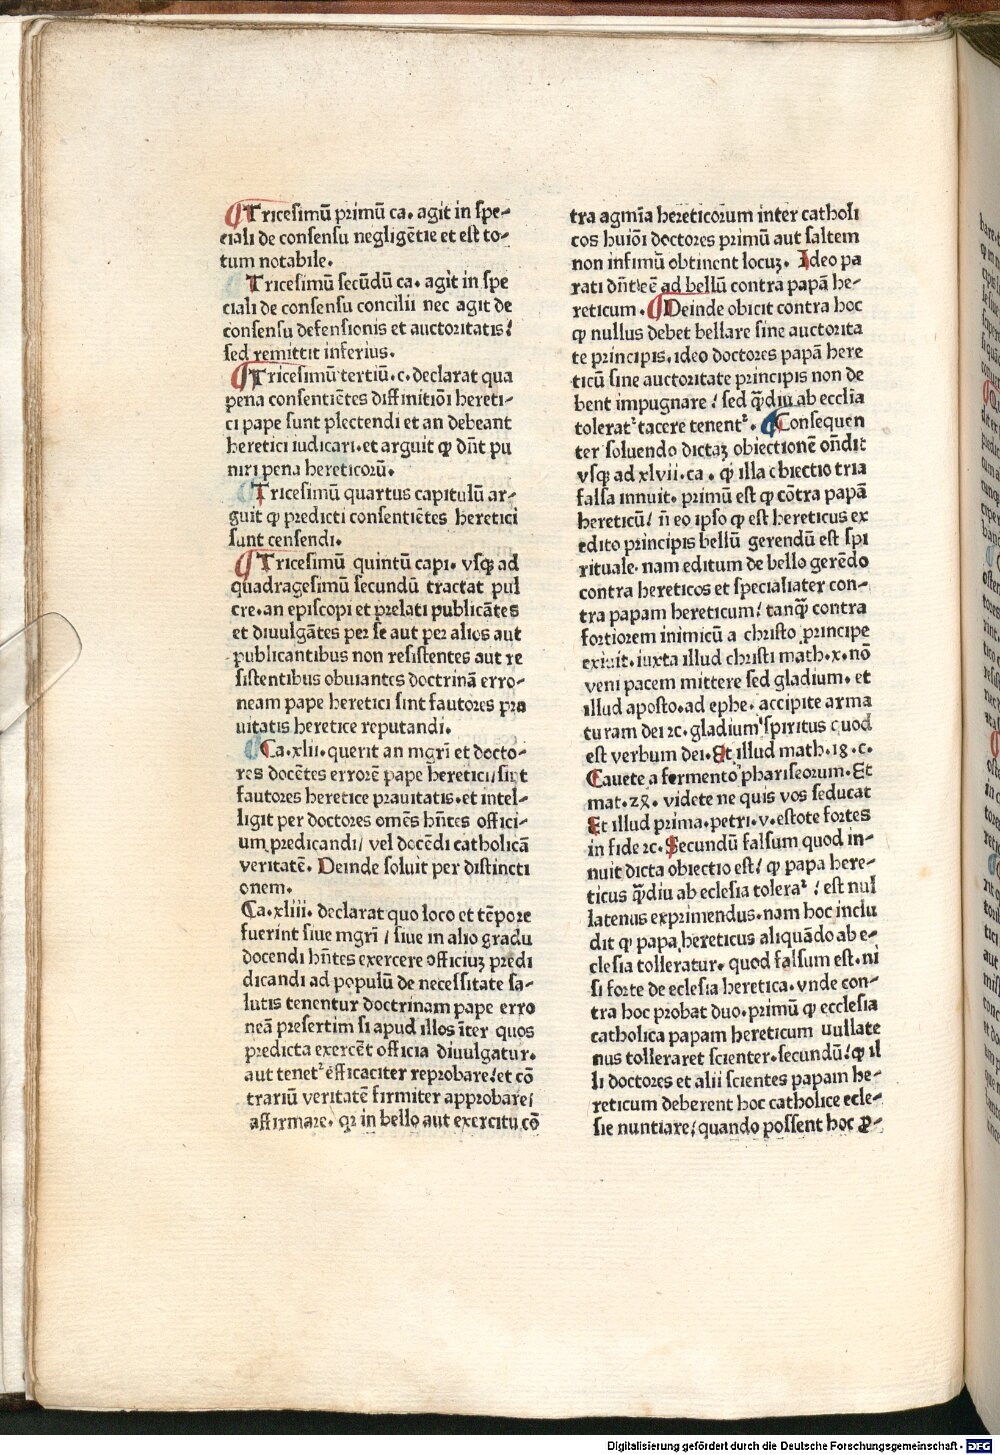 ¶Tricesimū primū ca. agit in spe-
ciali de consensu negligētie et est to-
tum notabile.
¶Tricesimū secūdū ca. agit in spe
ciali de consensu concilii nec agit de
consensu defensionis et auctoritatis/
sed remittit inferius.
¶Tricesimū tertiū.c. declarat qua
pena consentiētes diffinitiōi hereti-
ci pape sunt plectendi et an debeant
heretici iudicari.et arguit ꝙ dn̄t pu
niri pena hereticorū.
¶Tricesimū quartus capitulū ar-
guit ꝙ predicti consentiētes heretici
sunt censendi.
¶Tricesimū quintū capi. vsqꝫ ad
quadragesimū secundū tractat pul
cre.an episcopi et prelati publicātes
et diuulgātes per se aut per alios aut
publicantibus non resistentes aut re
sistentibus obuiantes doctrinā erro-
neam pape heretici sint fautores pra
uitatis heretice reputandi.
¶Ca.xlii.querit an mgr̄i et docto-
res docētes errorē pape heretici/sint
fautores heretice prauitatis.et intel-
ligit per doctores omēs hn̄tes offici-
um predicandi/ vel docēdi catholicā
veritatē. Deinde soluit per distincti
onem.
Ca.xliii. declarat quo loco et tēpore
fuerint siue mgr̄i / siue in alio gradu
docendi hn̄tes exercere officiuꝫ predi
dicandi ad populū de necessitate sa-
lutis tenentur doctrinam pape erro
neā presertim si apud illos īter quos
predicta exercēt officia diuulgatur.
aut tenetᷣ efficaciter reprobare/et cō
trariū veritatē firmiter approbare/
affirmare. qꝛ in bello aut exercitu cō
tra agmīa hereticorum inter catholi
cos huiōi doctores primū aut saltem
non infimū obtinent locuꝫ. Ideo pa
rati dn̄t eē ad bellū contra papā he-
reticum. ¶Deinde obicit contra hoc
ꝙ nullus debet bellare sine auctorita
te principis.ideo doctores papā here
ticū sine auctoritate principis non de
bent impugnare / sed qͣ̄diu ab ecclīa
toleratᷣ tacere tenentᷣ. ¶Consequen
ter soluendo dictaꝫ obiectionē on̄dit
vsqꝫ ad xlvii.ca. qꝙ illa obiectio tria
falsa innuit. primū est ꝙ cōtra papā
hereticū/ n̄ eo ipso ꝙ est hereticus ex
edito principis bellū gerendū est spi
rituale. nam editum de bello gerēdo
contra hereticos et specialiater con-
tra papam hereticum/ tanqͣ̄ contra
fortiorem inimicū a christo principe
exiuit. iuxta illud christi math.x.nō
veni pacem mittere sed gladium. et
illud aposto.ad ephe. accipite arma
turam dei ꝛc. gladium spiritus quod
est verbum dei. Et illud math.18.c.
Cauete a fermento phariseorum. Et
mat.24. videte ne quis vos seducat
Et illud prima.petri.v.estote fortes
in fide ꝛc. Secundū falsum quod in-
nuit dicta obiectio est/ ꝙ papa here-
ticus qͣ̄diu ab eclesia toleraᷣ / est nul
latenus exprimendus.nam hoc inclu
dit ꝙ papa hereticus aliquādo ab e-
clesia tolleratur. quod falsum est.ni
si forte de eclesia heretica. vnde con-
tra hoc probat duo.primū ꝙ ecclesia
catholica papam hereticum uullate
nus tolleraret scienter.secundū/ꝙ il
li doctores et alii scientes papam he-
reticum deberent hoc catholice ecle-
sie nuntiare/quando possent hoc ꝓ-
Digitalisierung gefördert durch die Deutsche Forschungsgemeinschaft - DFG